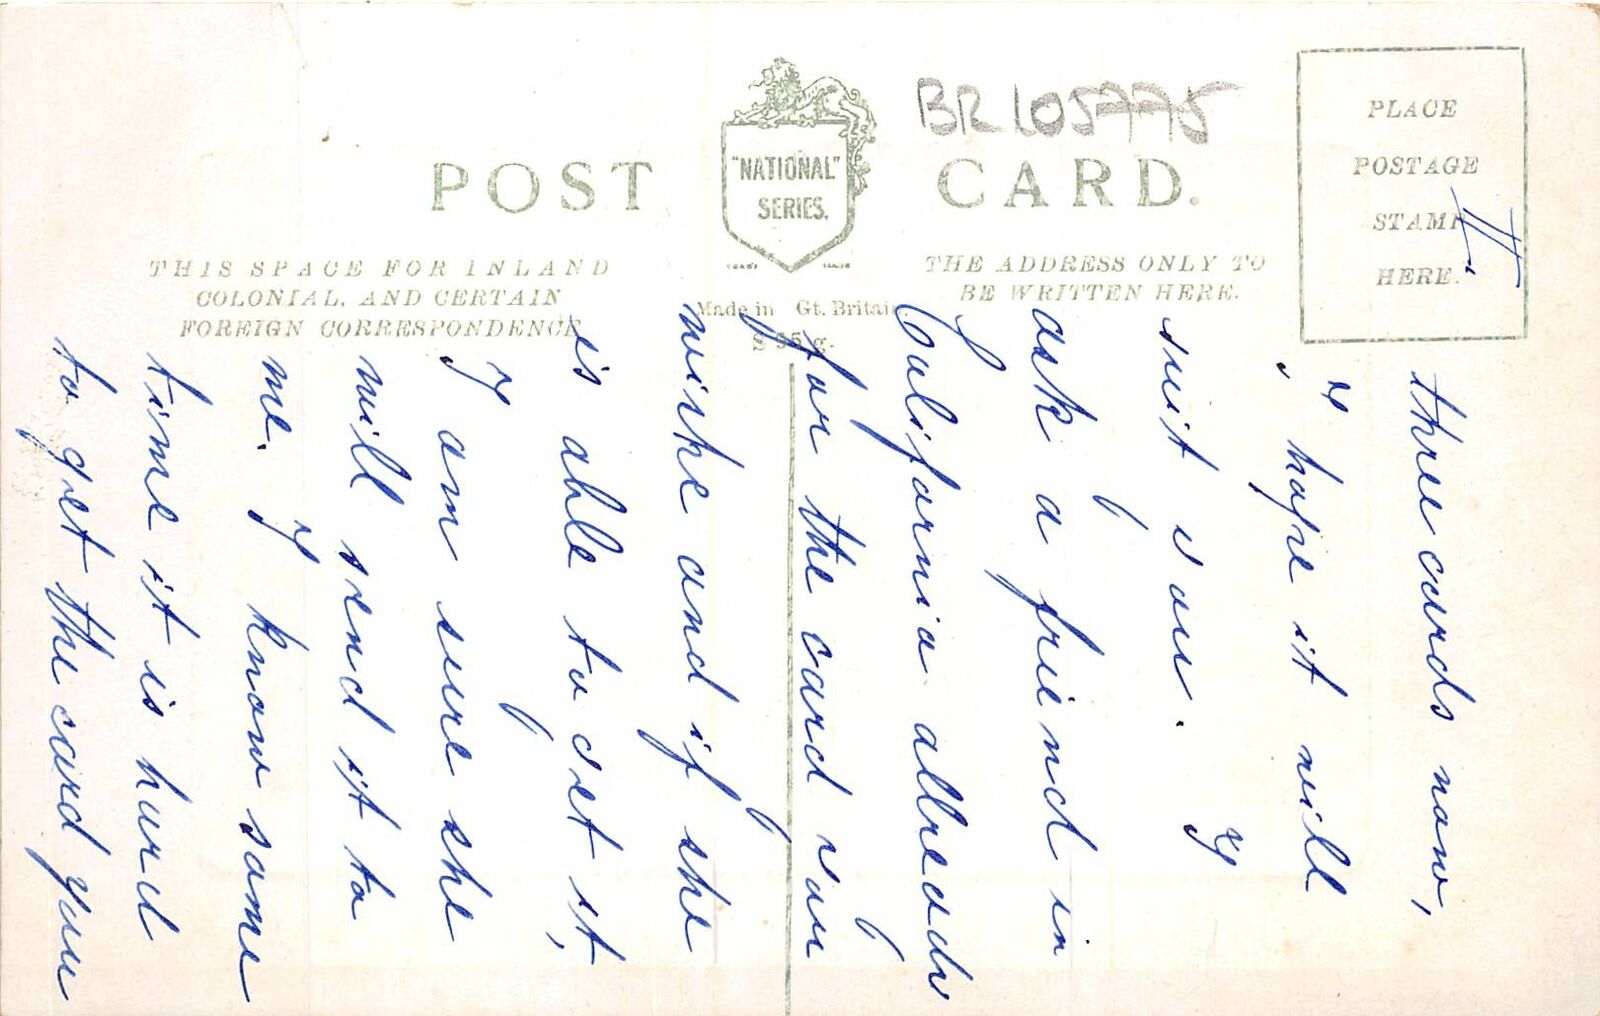 BR 105775
POST CARD.
"NATIONAL"
SERIES.
THIS SPACE FOR INLAND
COLONIAL, AND CERTAIN
FOREIGN CORRESPONDENCE
THE ADDRESS ONLY TO
BE WRITTEN HERE.
Made in Gt. Britain.
PLACE
POSTAGE
STAMP
HERE.
II
three cards now,
I hope it will
suit you. I
ask a friend in
California allready
for the card you
wishe and if she
is able to get it,
I am sure she
will send it to
me. I know some
time it is hard
to get the card you